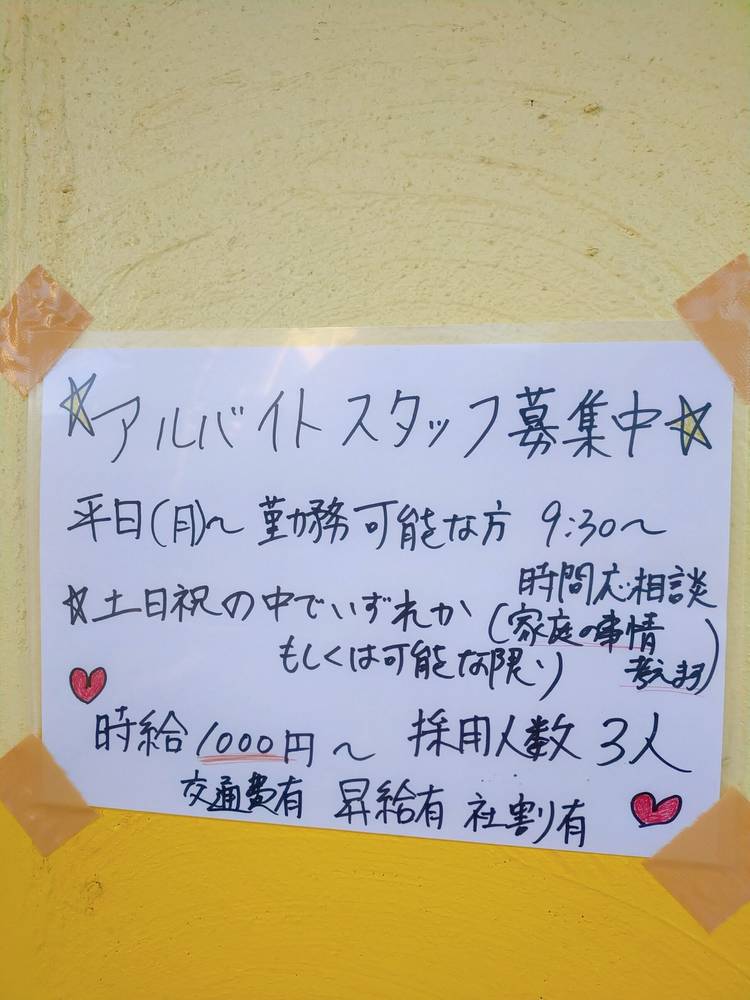 ☆アルバイトスタッフ募集中☆
平日(月)～勤務可能な方 9:30～
時間応相談
☆土日祝の中でいずれか
(家庭の事情
もしくは可能な限り
考えます)
時給1000円～ 採用人数3人
交通費有 昇給有 社割有